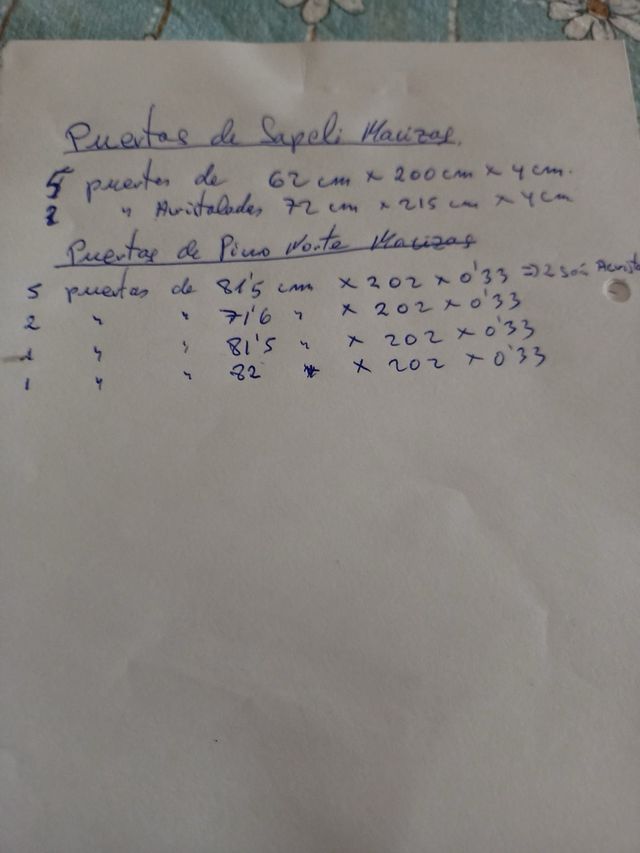 Puertas de Sapeli Macizas.
5 puertas de 62 cm x 200 cm x 4 cm.
2 " Acristalades 72 cm x 215 cm x 4 cm
Puertas de Pino Norte Macizas
5 puertas de 81'5 cm x 202 x 0'33 => 2 son Acrista
2 " " 71'6 " x 202 x 0'33
1 " " 81'5 " x 202 x 0'33
1 " " 82 " x 202 x 0'33